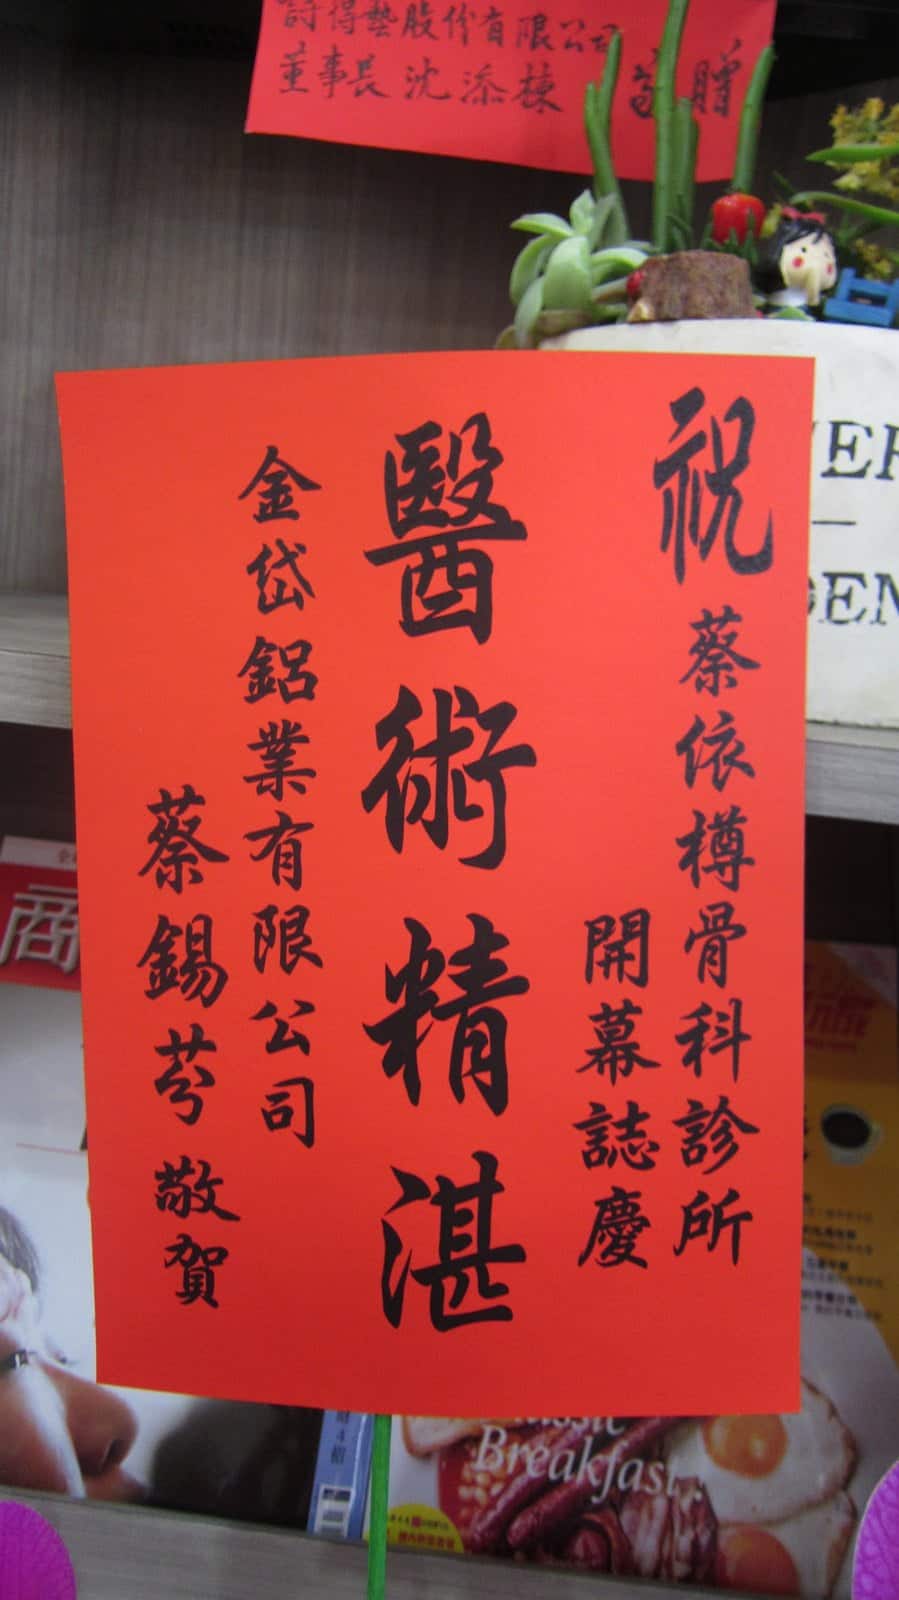 詩得藝股份有限公司
董事長 沈添棟 敬贈
祝
蔡依樽骨科診所
開幕誌慶
醫術精湛
金岱鋁業有限公司
蔡錫芬 敬賀
商
Breakfast